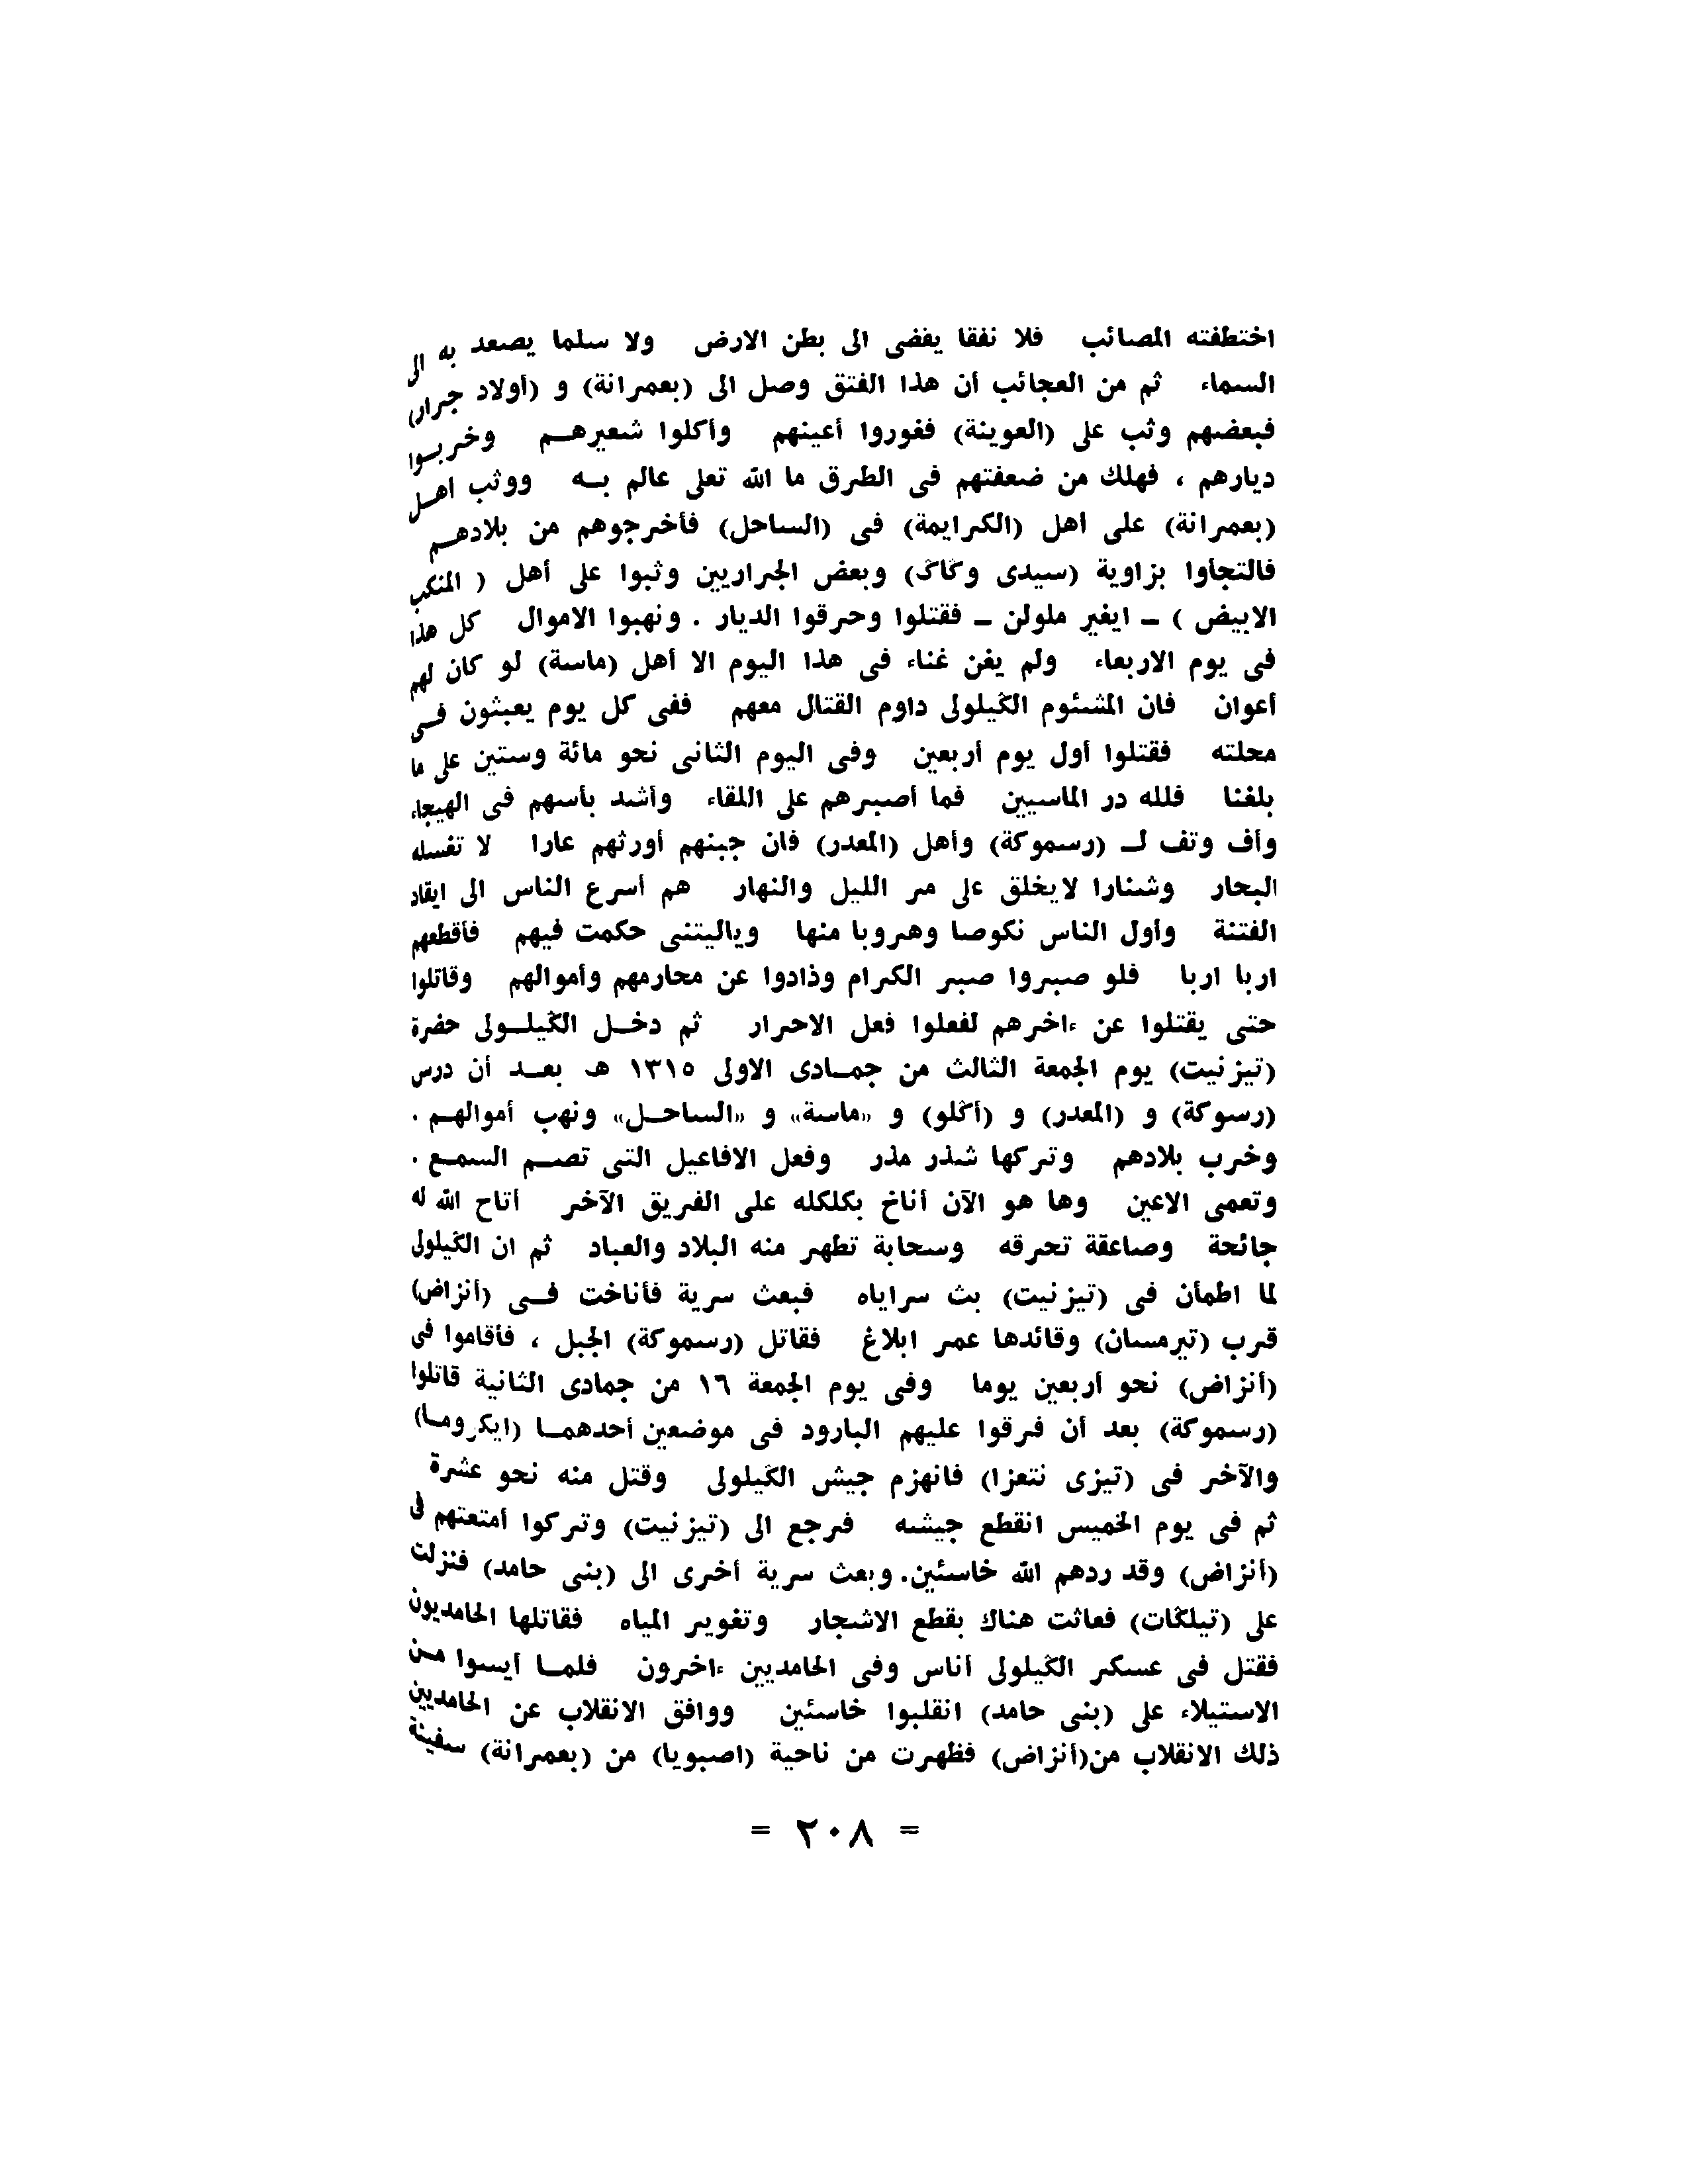 اختطفته المصائب فلا نفقا يفضى الى بطن الارض ولا سلما يصعد به الى
السماء ثم من العجائب أن هذا الفتق وصل الى (بعمرانة) و (أولاد جرار)
فبعضهم وثب على (العوينة) فغوروا أعينهم وأكلوا شعيرهم وخربوا
ديارهم ، فهلك من ضعفتهم فى الطرق ما الله تعلى عالم به ووثب اهل
(بعمرانة) على أهل (الكرايمة) فى (الساحل) فأخرجوهم من بلادهم
فالتجأوا بزاوية (سيدى وڭاڭ) وبعض الجراريين وثبوا على أهل ( المنكب
الابيض ) ـ ايغير ملولن ـ فقتلوا وحرقوا الديار . ونهبوا الاموال كل هذا
فى يوم الاربعاء ولم يغن غناء فى هذا اليوم الا أهل (ماسة) لو كان لهم
أعوان فان المشئوم الڭيلولى داوم القتال معهم ففى كل يوم يعبثون فى
محلته فقتلوا أول يوم أربعين وفى اليوم الثانى نحو مائة وستين على ما
بلغنا فلله در الماسيين فما أصبرهم على اللقاء وأشد بأسهم فى الهيجاء
وأف وتف لـ (رسموكة) وأهل (المعدر) فان جبنهم أورثهم عارا لا تغسله
البحار وشنارا لايخلق على مر الليل والنهار هم أسرع الناس الى ايقاد
الفتنة وأول الناس نكوصا وهروبا منها وياليتنى حكمت فيهم فأقطعهم
اربا اربا فلو صبروا صبر الكرام وذادوا عن محارمهم وأموالهم وقاتلوا
حتى يقتلوا عن ءاخرهم لفعلوا فعل الاحرار ثم دخل الڭيلولى حضرة
(تيزنيت) يوم الجمعة الثالث من جمادى الاولى ١٣١٥ هـ بعد أن درس
(رسوكة) و (المعدر) و (أڭلو) و «ماسة» و «الساحل» ونهب أموالهم .
وخرب بلادهم وتركها شذر مذر وفعل الافاعيل التى تصم السمع .
وتعمى الاعين وها هو الآن أناخ بكلكله على الفريق الآخر أتاح الله له
جائحة وصاعقة تحرقه وسحابة تطهر منه البلاد والعباد ثم ان الڭيلولى
لما اطمأن فى (تيزنيت) بث سراياه فبعث سرية فأناخت فى (أنزاض)
قرب (تيرمسان) وقائدها عمر ابلاغ فقاتل (رسموكة) الجبل ، فأقاموا فى
(أنزاض) نحو أربعين يوما وفى يوم الجمعة ١٦ من جمادى الثانية قاتلوا
(رسموكة) بعد أن فرقوا عليهم البارود فى موضعين أحدهما (ايكروما)
والآخر فى (تيزى نتعزا) فانهزم جيش الڭيلولى وقتل منه نحو عشرة
ثم فى يوم الخميس انقطع جيشه فرجع الى (تيزنيت) وتركوا أمتعتهم فى
(أنزاض) وقد ردهم الله خاسئين. وبعث سرية أخرى الى (بنى حامد) فنزلت
على (تيلڭات) فعاثت هناك بقطع الاشجار وتغوير المياه فقاتلها الحامديون
فقتل فى عسكر الڭيلولى أناس وفى الحامديين ءاخرون فلما أيسوا من
الاستيلاء على (بنى حامد) انقلبوا خاسئين ووافق الانقلاب عن الحامديين
ذلك الانقلاب من(أنزاض) فظهرت من ناحية (اصبويا) من (بعمرانة) سفينة
= ٢٠٨ =